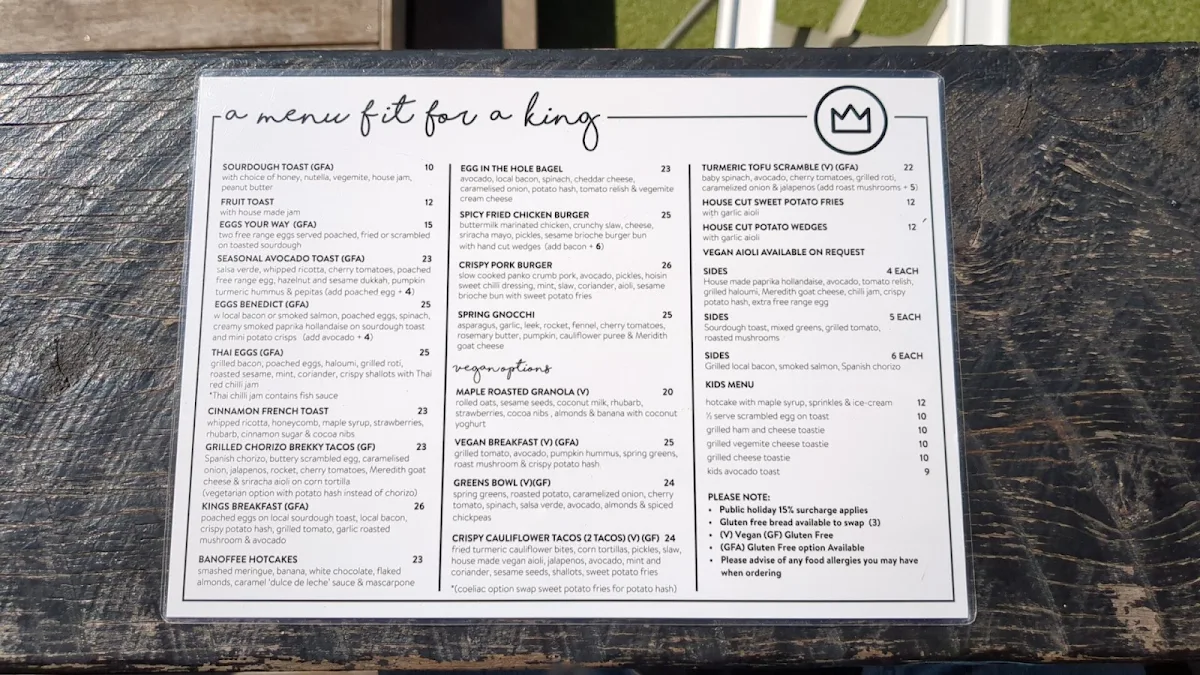 a menu fit for a king
SOURDOUGH TOAST (GFA) 10
with choice of honey, nutella, vegemite, house jam,
peanut butter
FRUIT TOAST 12
with house made jam
EGGS YOUR WAY (GFA) 15
two free range eggs served poached, fried or scrambled
on toasted sourdough
SEASONAL AVOCADO TOAST (GFA) 23
salsa verde, whipped ricotta, cherry tomatoes, poached
free range egg, hazelnut and sesame dukkah, pumpkin
turmeric hummus & pepitas (add poached egg + 4)
EGGS BENEDICT (GFA) 25
w local bacon or smoked salmon, poached eggs, spinach,
creamy smoked paprika hollandaise on sourdough toast
and mini potato crisps (add avocado + 4)
THAI EGGS (GFA) 25
grilled bacon, poached eggs, haloumi, grilled roti,
roasted sesame, mint, coriander, crispy shallots with Thai
red chilli jam
*Thai chilli jam contains fish sauce
CINNAMON FRENCH TOAST 23
whipped ricotta, honeycomb, maple syrup, strawberries,
rhubarb, cinnamon sugar & cocoa nibs
GRILLED CHORIZO BREKKY TACOS (GF) 23
Spanish chorizo, buttery scrambled egg, caramelised
onion, jalapenos, rocket, cherry tomatoes, Meredith goat
cheese & sriracha aioli on corn tortilla
(vegetarian option with potato hash instead of chorizo)
KINGS BREAKFAST (GFA) 26
poached eggs on local sourdough toast, local bacon,
crispy potato hash, grilled tomato, garlic roasted
mushroom & avocado
BANOFFEE HOTCAKES 23
smashed meringue, banana, white chocolate, flaked
almonds, caramel 'dulce de leche' sauce & mascarpone
EGG IN THE HOLE BAGEL 23
avocado, local bacon, spinach, cheddar cheese,
caramelised onion, potato hash, tomato relish & vegemite
cream cheese
SPICY FRIED CHICKEN BURGER 25
buttermilk marinated chicken, crunchy slaw, cheese,
sriracha mayo, pickles, sesame brioche burger bun
with hand cut wedges (add bacon + 6)
CRISPY PORK BURGER 26
slow cooked panko crumb pork, avocado, pickles, hoisin
sweet chilli dressing, mint, slaw, coriander, aioli, sesame
brioche bun with sweet potato fries
SPRING GNOCCHI 25
asparagus, garlic, leek, rocket, fennel, cherry tomatoes,
rosemary butter, pumpkin, cauliflower puree & Meridith
goat cheese
vegan options
MAPLE ROASTED GRANOLA (V) 20
rolled oats, sesame seeds, coconut milk, rhubarb,
strawberries, cocoa nibs , almonds & banana with coconut
yoghurt
VEGAN BREAKFAST (V) (GFA) 25
grilled tomato, avocado, pumpkin hummus, spring greens,
roast mushroom & crispy potato hash
GREENS BOWL (V)(GF) 24
spring greens, roasted potato, caramelized onion, cherry
tomato, spinach, salsa verde, avocado, almonds & spiced
chickpeas
CRISPY CAULIFLOWER TACOS (2 TACOS) (V) (GF) 24
fried turmeric cauliflower bites, corn tortillas, pickles, slaw,
house made vegan aioli, jalapenos, avocado, mint and
coriander, sesame seeds, shallots, sweet potato fries
*(coeliac option swap sweet potato fries for potato hash)
TURMERIC TOFU SCRAMBLE (V) (GFA) 22
baby spinach, avocado, cherry tomatoes, grilled roti,
caramelized onion & jalapenos (add roast mushrooms + 5)
HOUSE CUT SWEET POTATO FRIES 12
with garlic aioli
HOUSE CUT POTATO WEDGES 12
with garlic aioli
VEGAN AIOLI AVAILABLE ON REQUEST
SIDES 4 EACH
House made paprika hollandaise, avocado, tomato relish,
grilled haloumi, Meredith goat cheese, chilli jam, crispy
potato hash, extra free range egg
SIDES 5 EACH
Sourdough toast, mixed greens, grilled tomato,
roasted mushrooms
SIDES 6 EACH
Grilled local bacon, smoked salmon, Spanish chorizo
KIDS MENU
hotcake with maple syrup, sprinkles & ice-cream 12
½ serve scrambled egg on toast 10
grilled ham and cheese toastie 10
grilled vegemite cheese toastie 10
grilled cheese toastie 10
kids avocado toast 9
PLEASE NOTE:
• Public holiday 15% surcharge applies
• Gluten free bread available to swap (3)
• (V) Vegan (GF) Gluten Free
• (GFA) Gluten Free option Available
• Please advise of any food allergies you may have
when ordering